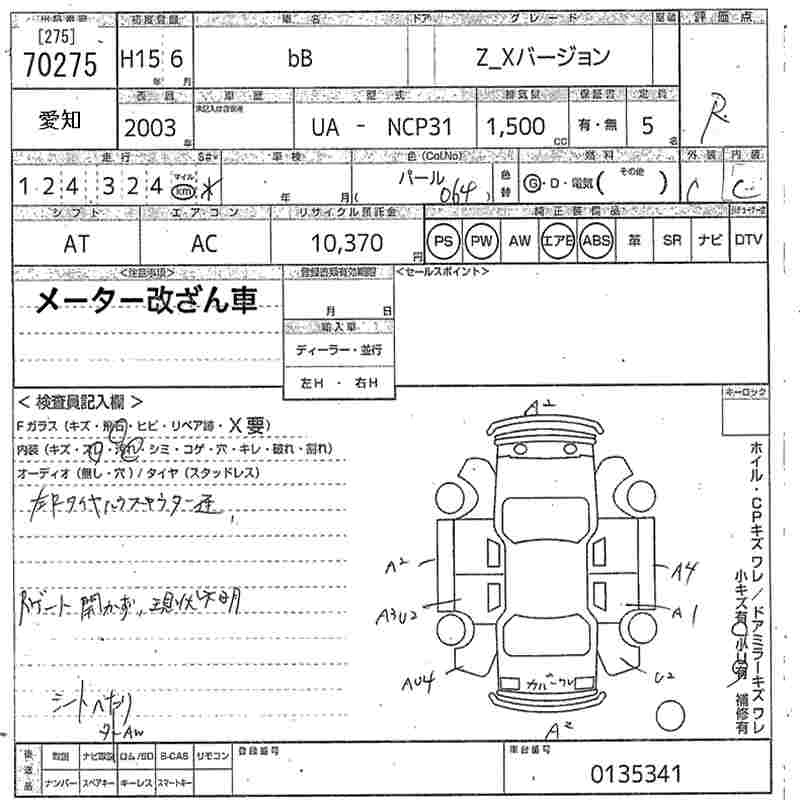 [275]
70275
初度登録
車名
ドア
グレード
評価点
H15 6
年 月
bB
Z_Xバージョン
R
愛知
2003
年
型式
排気量
保証書
定員
UA - NCP31
1,500
CC
有・無
5
走行
車検
色(Col.No)
燃料
外装
内装
124 324
マイル
km
*
年 月
パール
064
色替
G・D・電気(その他 )
C
C
シフト
エアコン
リサイクル預託金
純正装備品
AT
AC
10,370
円
PS
PW
AW
エアB
ABS
革
SR
ナビ
DTV
<注意事項>
メーター改ざん車
登録書類有効期限
月 日
<セールスポイント>
輸入車
ディーラー・並行
左H ・ 右H
キーロック
< 検査員記入欄 >
Fガラス(キズ・飛石・ヒビ・リペア跡・X要)
内装(キズ・スレ・汚れ・シミ・コゲ・穴・キレ・破れ・割れ)
オーディオ(無し・穴)/タイヤ(スタッドレス)
Rゲート開かず、現状不明
シートヘタリ
A2
A2
A4
A3U2
A1
AU4
U2
カバーワレ
A2
ホイル・CPキズワレ/ドアミラーキズワレ
小キズ有・小U有・補修有
後送品
取説
ナビ取説
ロム/SD
B-CAS
リモコン
ナンバー
スペアキー
キーレス
スマートキー
登録番号
車台番号
0135341